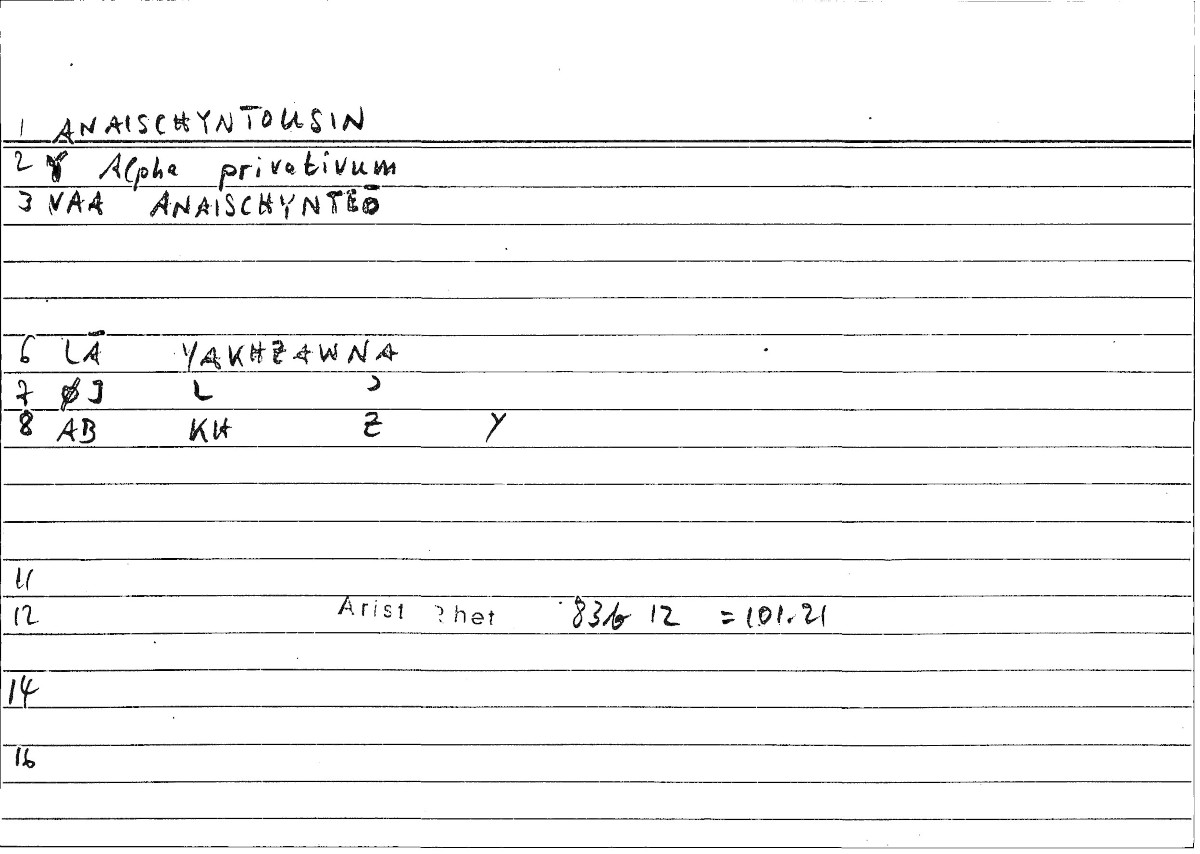 1 ANAISCHYNTOUSIN
2 Alpha privativum
3 VAA ANAISCHYNTEŌ
6 LĀ YAKHZAWNA
7 ØJ L ʾ
8 AB KH Z Y
11
12 Arist Rhet 83b 12 = 101.21
14
16